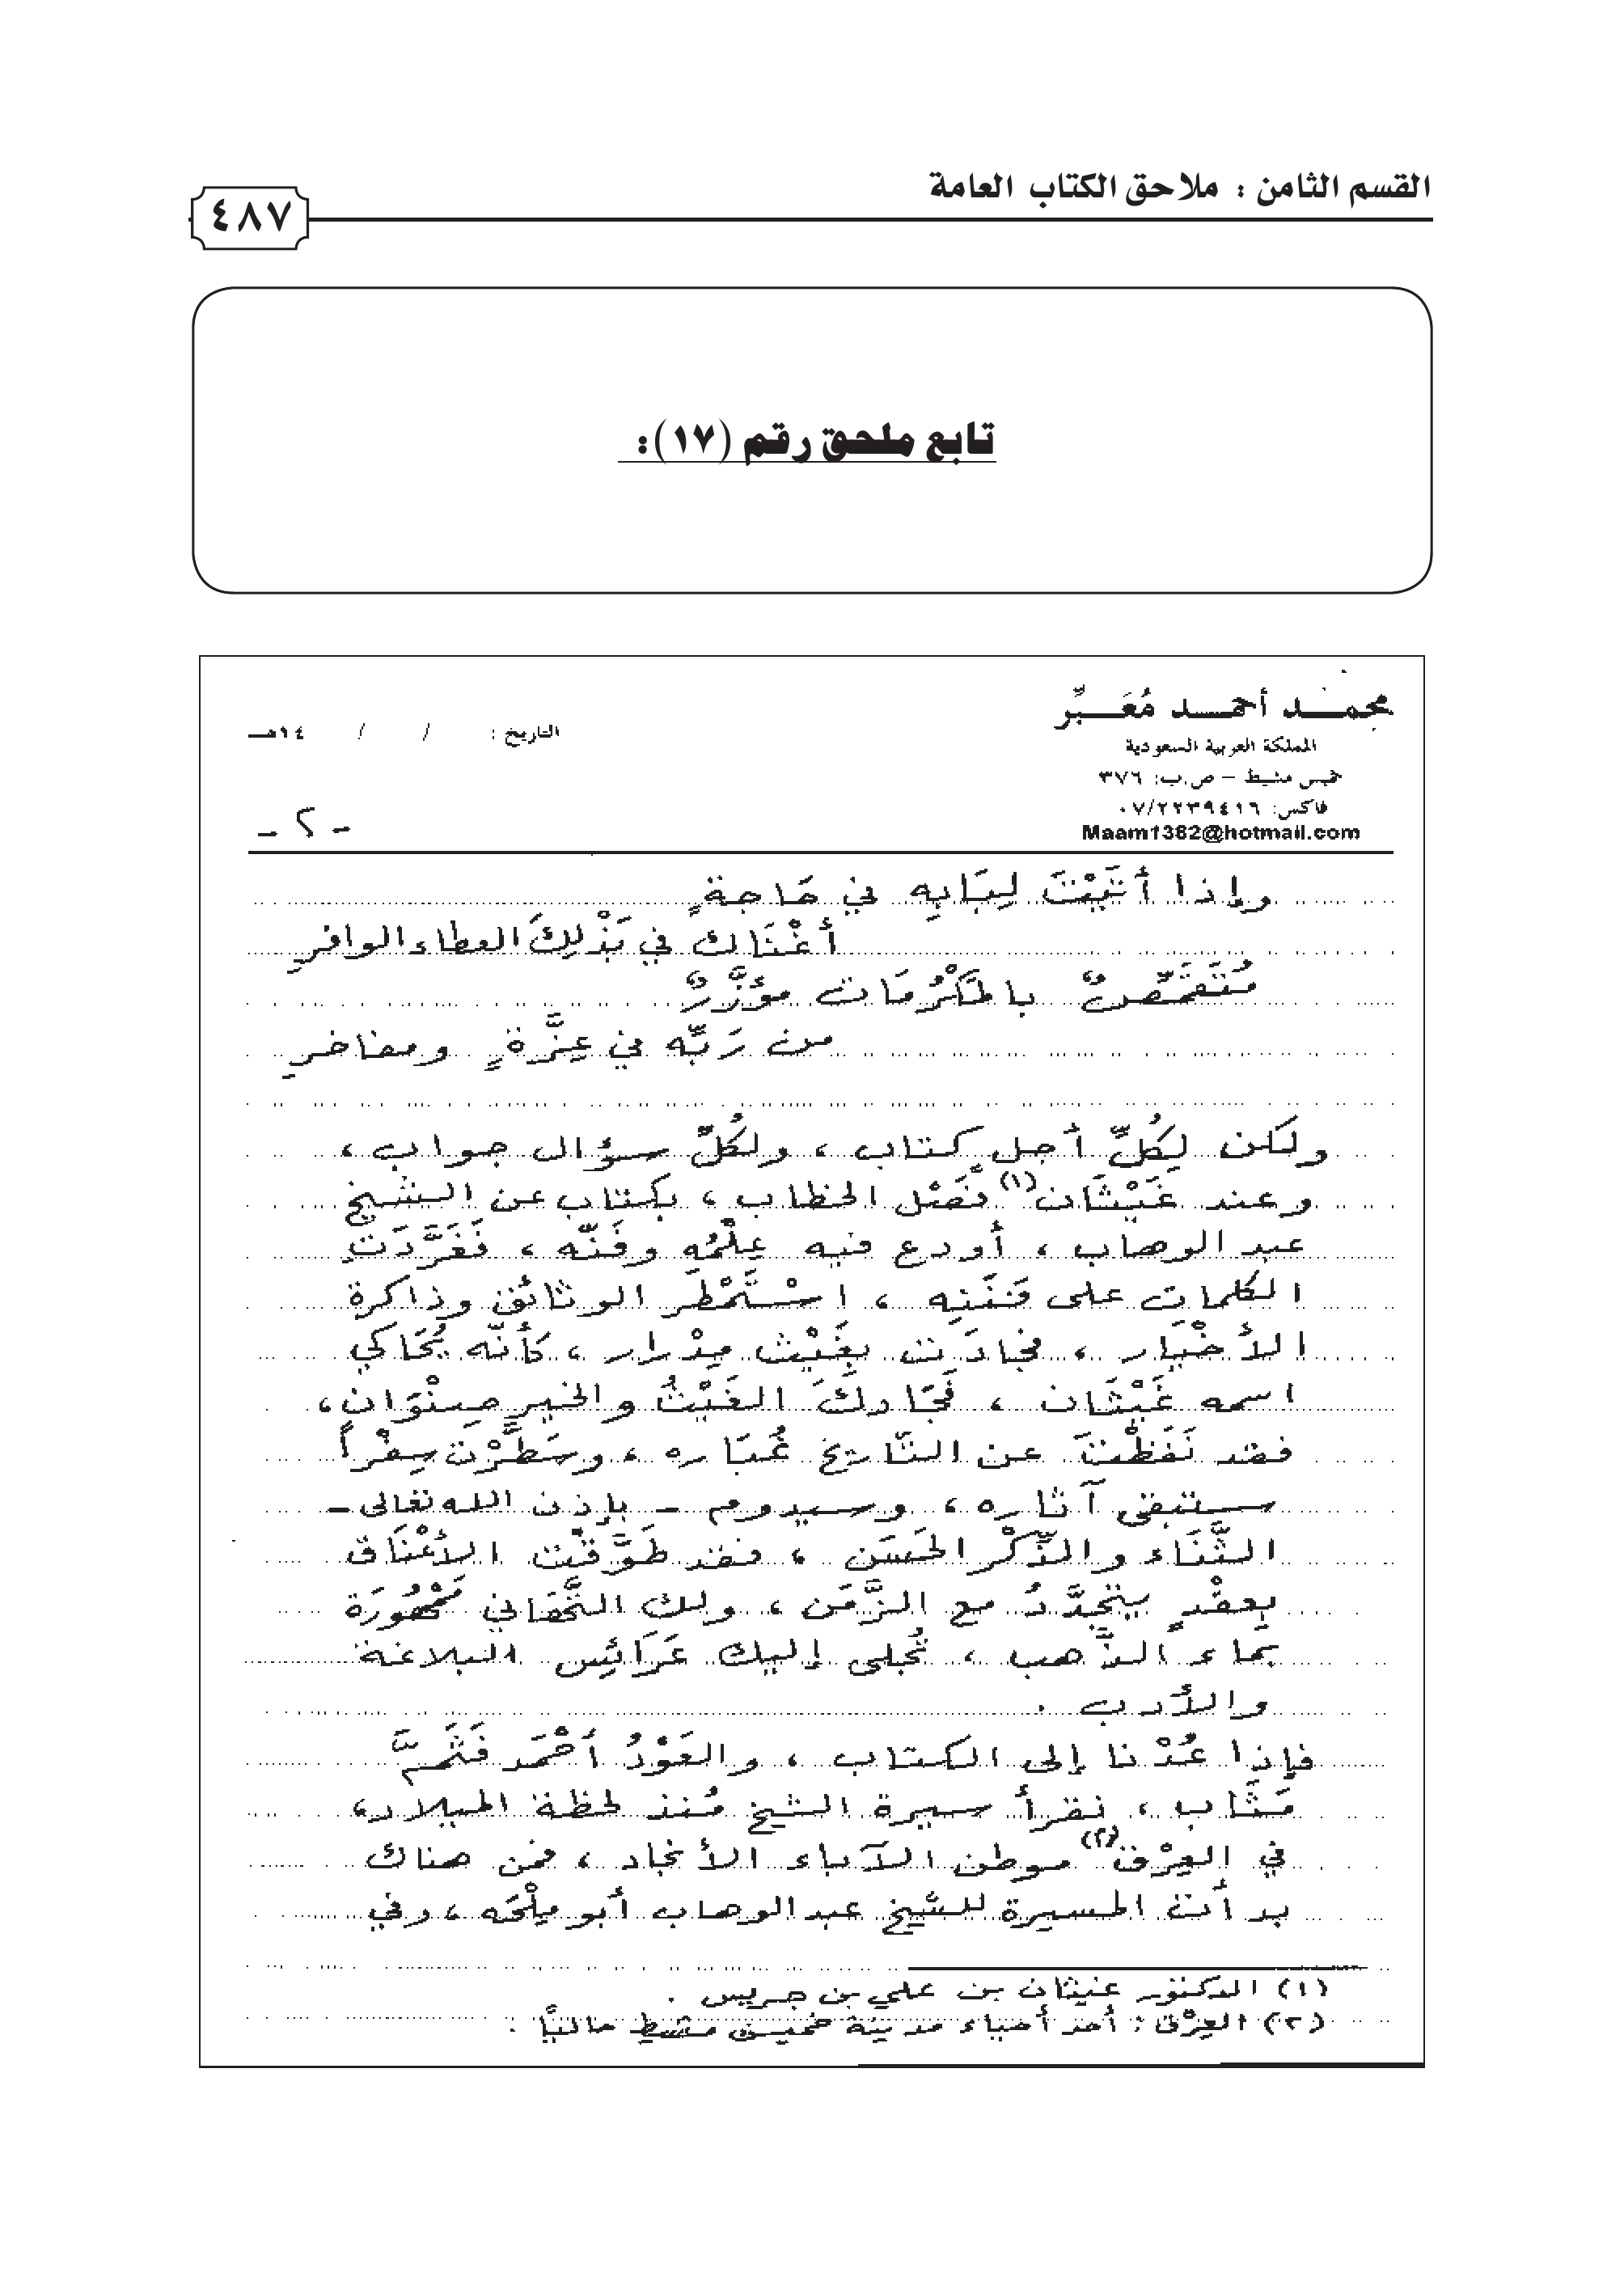 القسم الثامن : ملاحق الكتاب العامة
٤٨٧
تابع ملحق رقم (١٧):
محمد أحمد مُعَبِّر
المملكة العربية السعودية
خميس مشيط – ص.ب: ٣٧٦
فاكس: ٠٧/٢٢٣٩٤١٦
Maam1382@hotmail.com
التاريخ : / / ١٤هـ
- ٢ -
وإذا أَتَيْتَ لِبَابِهِ في حَاجةٍ
أَغْنَاكَ في بَذْلِكَ العطاء الوافرِ
مُتَقَمِّصٌ بالمَكْرُمَات مؤزَّرٌ
من رَبِّه في عِزَّةٍ ومفاخرِ
ولكن لِكُلِّ أَجل كتاب ، ولكُلِّ سؤال جواب ،
وعند غَيْثَان(١) فَصْل الخطاب ، بكتاب عن الشيخ
عبد الوهاب ، أودع فيه عِلْمُه وفَنّه ، فَغَرَّدَت
الكلمات على فَنَنِه ، اسْتَمْطَر الوثائق وذاكرة
الأَخْبار ، فجادَت بغَيْث مِدْرار ، كَأَنّه يُحَاكي
اسمه غَيْثَان ، فَجَادكَ الغَيْثُ والخير صِنْوَان ،
فقد نَفَضْتَ عن التّاريخ غُبَاره ، وسَطَّرْت سِفْراً
ستبقى آثاره ، وسيدوم - بإذن الله تعالى -
الثَّنَاء والذِّكْر الحَسَن ، فقد طَوَّقْت الأَعْنَاق
بِعِقْدٍ يتجَدَّدُ مع الزَّمَن ، ولك التَّهَاني مَمْهُورَة
بماء الذَّهب ، تُجلى إليك عَرَائِس البلاغة
والأَدب .
فإذا عُدْنا إلى الكتاب ، والعَوْدُ أَحْمَد فَثَمَّ
مَثَاب ، نقرأ سيرة الشيخ مُنذ لحظة الميلاد ،
في العِرْق(٢) موطن الآباء الأنجاد ، فمن هناك
بدأت المسيرة للشّيخ عبد الوهاب أبو مِلْحَه ، وفي
(١) الدكتور غيثان بن علي بن جريس .
(٢) العِرْق : أحد أحياء مدينة خميس مشيط حالياً .